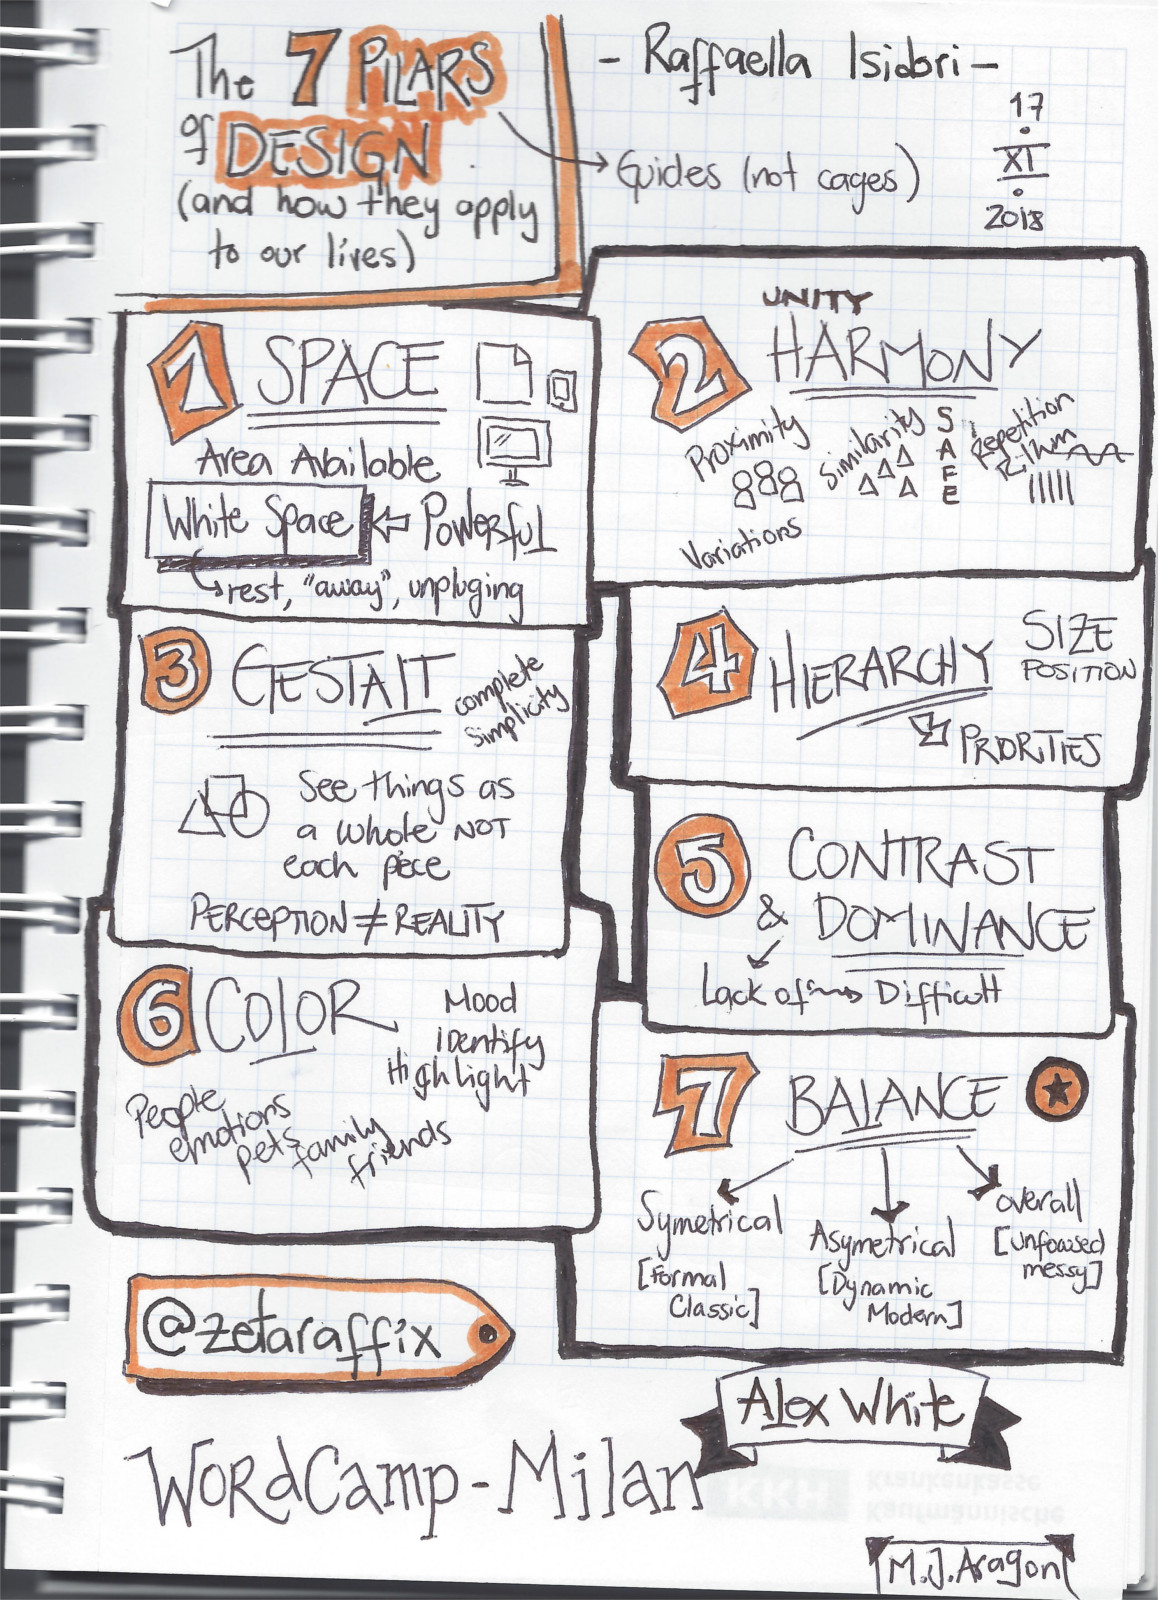 The 7 PILARS
of DESIGN
(and how they apply
to our lives)
- Raffaella Isidori -
Guides (not cages)
17
XI
2018
1 SPACE
Area Available
White Space Powerful
rest, "away", unpluging
2 UNITY
HARMONY
Proximity
Similarity
SAFE
Repetition
Rithm
Variations
3 GESTALT
complete
simplicity
See things as
a whole NOT
each piece
PERCEPTION ≠ REALITY
4 HIERARCHY
SIZE
POSITION
PRIORITIES
5 CONTRAST
& DOMINANCE
Lack of Difficult
6 COLOR
Mood
identify
Highlight
People
emotions
pets family
friends
7 BALANCE
Symetrical
[Formal
Classic]
Asymetrical
[Dynamic
Modern]
overall
[unfocused
messy]
@zetaraffix
Alex White
WordCamp - Milan
KKH Kaufmännische
Krankenkasse
M.J.Aragon